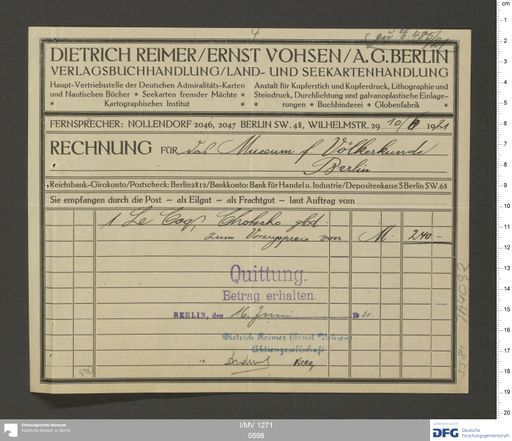 4
DIETRICH REIMER/ERNST VOHSEN/A.G. BERLIN
VERLAGSBUCHHANDLUNG/LAND- UND SEEKARTENHANDLUNG
Haupt-Vertriebsstelle der Deutschen Admiralitäts-Karten
und Nautischen Bücher * Seekarten fremder Mächte *
* Kartographisches Institut *
Anstalt für Kupferstich und Kupferdruck, Lithographie und
Steindruck, Durchlichtung und galvanoplastische Einlage-
* rungen * Buchbinderei * Globenfabrik *
FERNSPRECHER: NOLLENDORF 2046, 2047 BERLIN SW. 48, WILHELMSTR. 29 10/6 1921
RECHNUNG FÜR das Museum f Völkerkunde
Berlin
Reichsbank-Girokonto/Postscheck: Berlin 2812/Bankkonto: Bank für Handel u. Industrie/Depositenkasse S Berlin SW. 68
Sie empfangen durch die Post – als Eilgut – als Frachtgut – laut Auftrag vom
1 Le Coq, Chotscho gbd
zum Vorzugspreis von M 240.–
Quittung.
Betrag erhalten.
BERLIN, den 16. Juni 1921
Dietrich Reimer (Ernst Vohsen)
Aktiengesellschaft
Ethnologisches Museum
Staatliche Museen zu Berlin
I/MV 1271
0598
gefördert durch
DFG Deutsche
Forschungsgemeinschaft